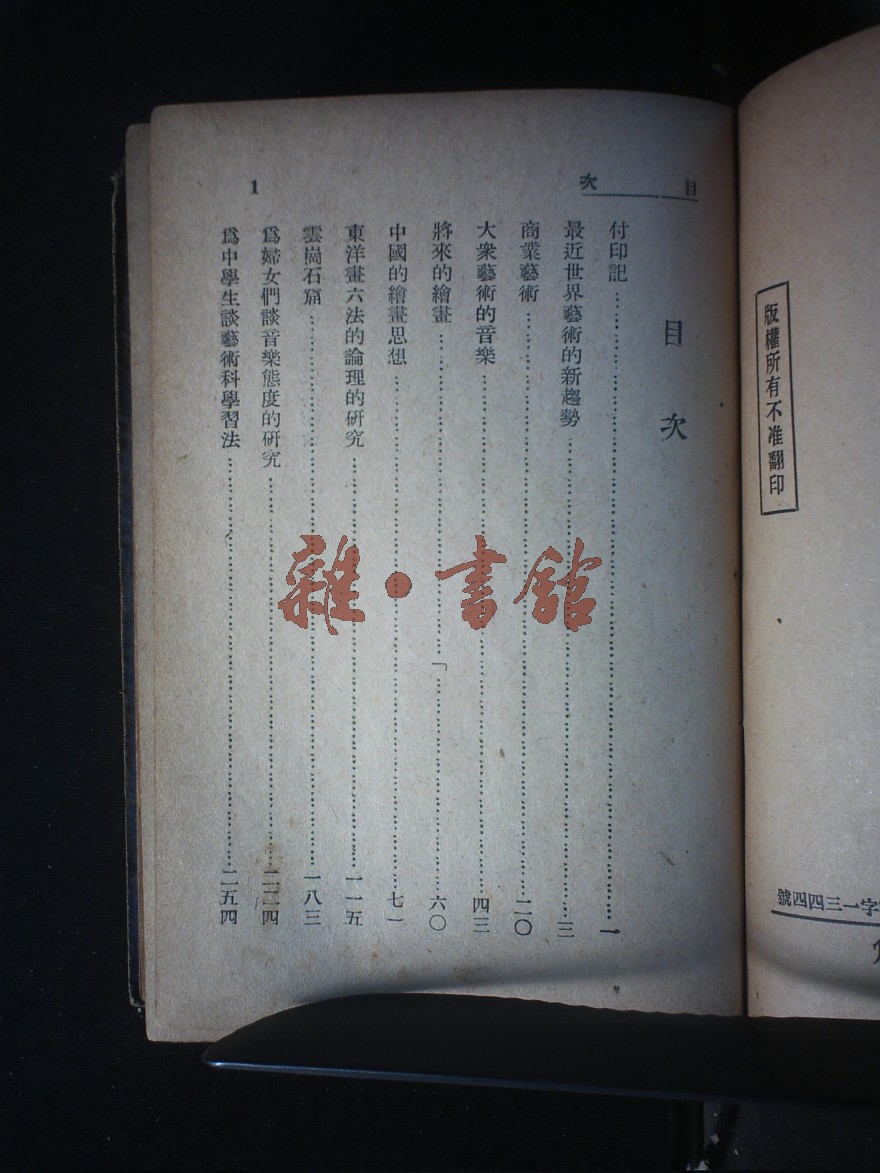 版權所有不准翻印
字一三四四號
目次
目次
付印記……一
最近世界藝術的新趨勢……三
商業藝術……二〇
大衆藝術的音樂……四三
將來的繪畫……六〇
中國的繪畫思想……七一
東洋畫六法的論理的研究……一一五
雲崗石窟……一八三
爲婦女們談音樂態度的研究……二二四
爲中學生談藝術科學習法……二五四
1
雜·書館